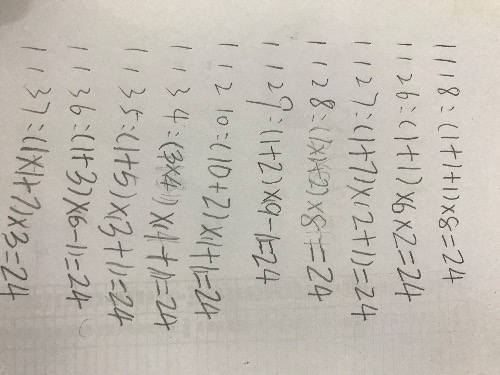 1 1 1 8:(1+1+1)×8=24
1 1 2 6:(1+1)×6×2=24
1 1 2 7:(1+7)×(2+1)=24
1 1 2 8:(1×1+2)×8=24
1 1 2 9:(1+2)×9-1=24
1 1 2 10:(10+2)×1+1=24
1 1 3 4:(3×4)×(1+1)=24
1 1 3 5:(1+5)×(3+1)=24
1 1 3 6:(1+3)×6-1)=24
1 1 3 7:(1×1+7)×3=24